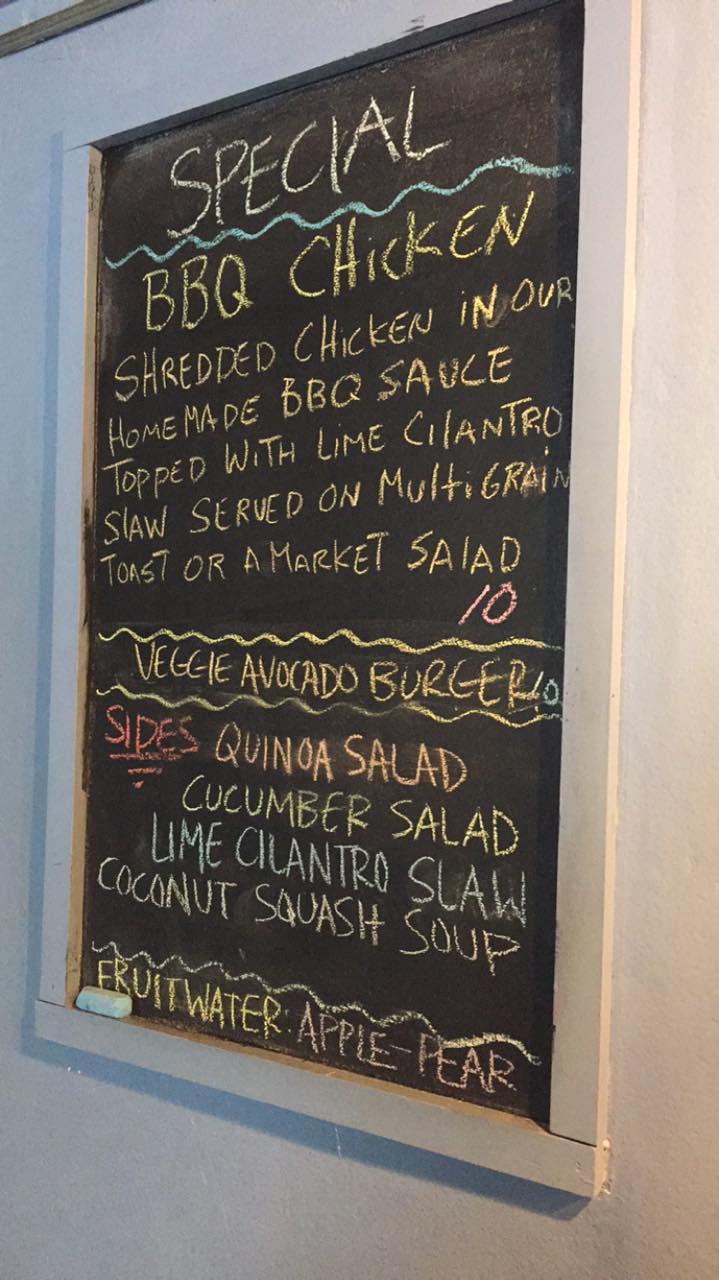 SPECIAL
BBQ CHICKEN
SHREDDED CHICKEN IN OUR
HOMEMADE BBQ SAUCE
TOPPED WITH LIME CILANTRO
SLAW SERVED ON MULTIGRAIN
TOAST OR A MARKET SALAD
10
VEGGIE AVOCADO BURGER 10
SIDES QUINOA SALAD
CUCUMBER SALAD
LIME CILANTRO SLAW
COCONUT SQUASH SOUP
FRUITWATER: APPLE-PEAR